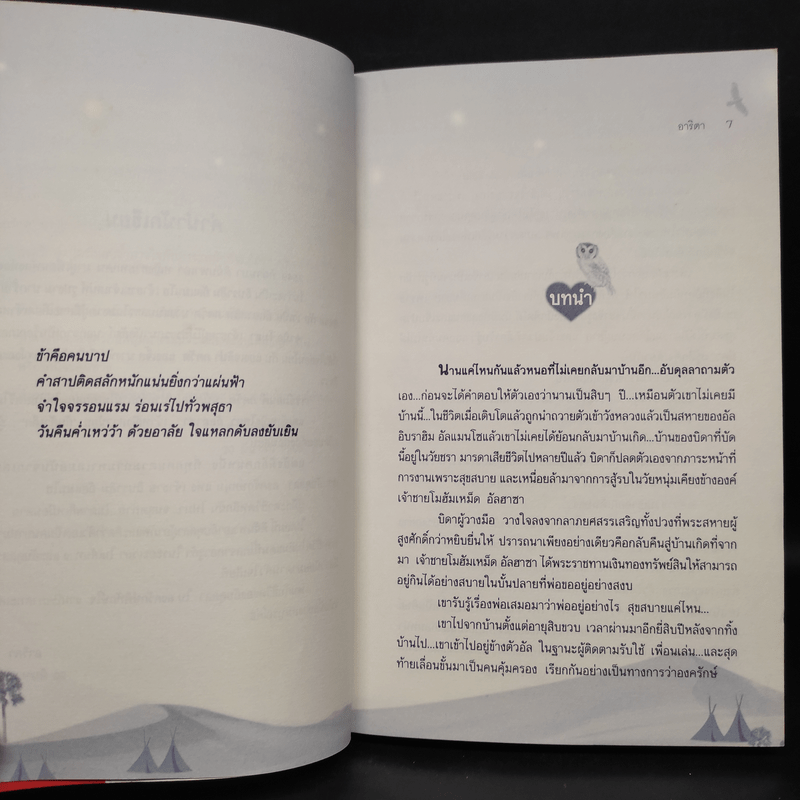 ข้าคือคนบาป
คำสาปติดสลักหนักแน่นยิ่งกว่าแผ่นฟ้า
จำใจจรรอนแรม ร่อนเร่ไปทั่วพสุธา
วันคืนค่ำเหว่ว้า ด้วยอาลัย ใจแหลกดับลงยับเยิน
อาริตา 7
บทนำ
นานแค่ไหนกันแล้วหนอที่ไม่เคยกลับมาบ้านอีก...อับดุลลาถามตัว
เอง...ก่อนจะได้คำตอบให้ตัวเองว่านานเป็นสิบๆ ปี...เหมือนตัวเขาไม่เคยมี
บ้านนี้...ในชีวิตเมื่อเติบโตแล้วถูกนำถวายตัวเข้าวังหลวงแล้วเป็นสหายของอัล
อิบราฮิม อัลแมนโซแล้วเขาไม่เคยได้ย้อนกลับมาบ้านเกิด...บ้านของบิดาที่บัด
นี้อยู่ในวัยชรา มารดาเสียชีวิตไปหลายปีแล้ว บิดาก็ปลดตัวเองจากภาระหน้าที่
การงานเพราะสุขสบาย และเหนื่อยล้ามาจากการสู้รบในวัยหนุ่มเคียงข้างองค์
เจ้าชายโมฮัมเหม็ด อัลฮาซา
บิดาผู้วางมือ วางใจลงจากลาภยศสรรเสริญทั้งปวงที่พระสหายผู้
สูงศักดิ์กว่าหยิบยื่นให้ ปรารถนาเพียงอย่างเดียวคือกลับคืนสู่บ้านเกิดที่จาก
มา เจ้าชายโมฮัมเหม็ด อัลฮาซา ได้พระราชทานเงินทองทรัพย์สินให้สามารถ
อยู่กินได้อย่างสบายในบั้นปลายที่พ่อขออยู่อย่างสงบ
เขารับรู้เรื่องพ่อเสมอมาว่าพ่ออยู่อย่างไร สุขสบายแค่ไหน...
เขาไปจากบ้านตั้งแต่อายุสิบขวบ เวลาผ่านมาอีกยี่สิบปีหลังจากทิ้ง
บ้านไป...เขาเข้าไปอยู่ข้างตัวอัล ในฐานะผู้ติดตามรับใช้ เพื่อนเล่น...และสุด
ท้ายเลื่อนขั้นมาเป็นคนคุ้มครอง เรียกกันอย่างเป็นทางการว่าองครักษ์